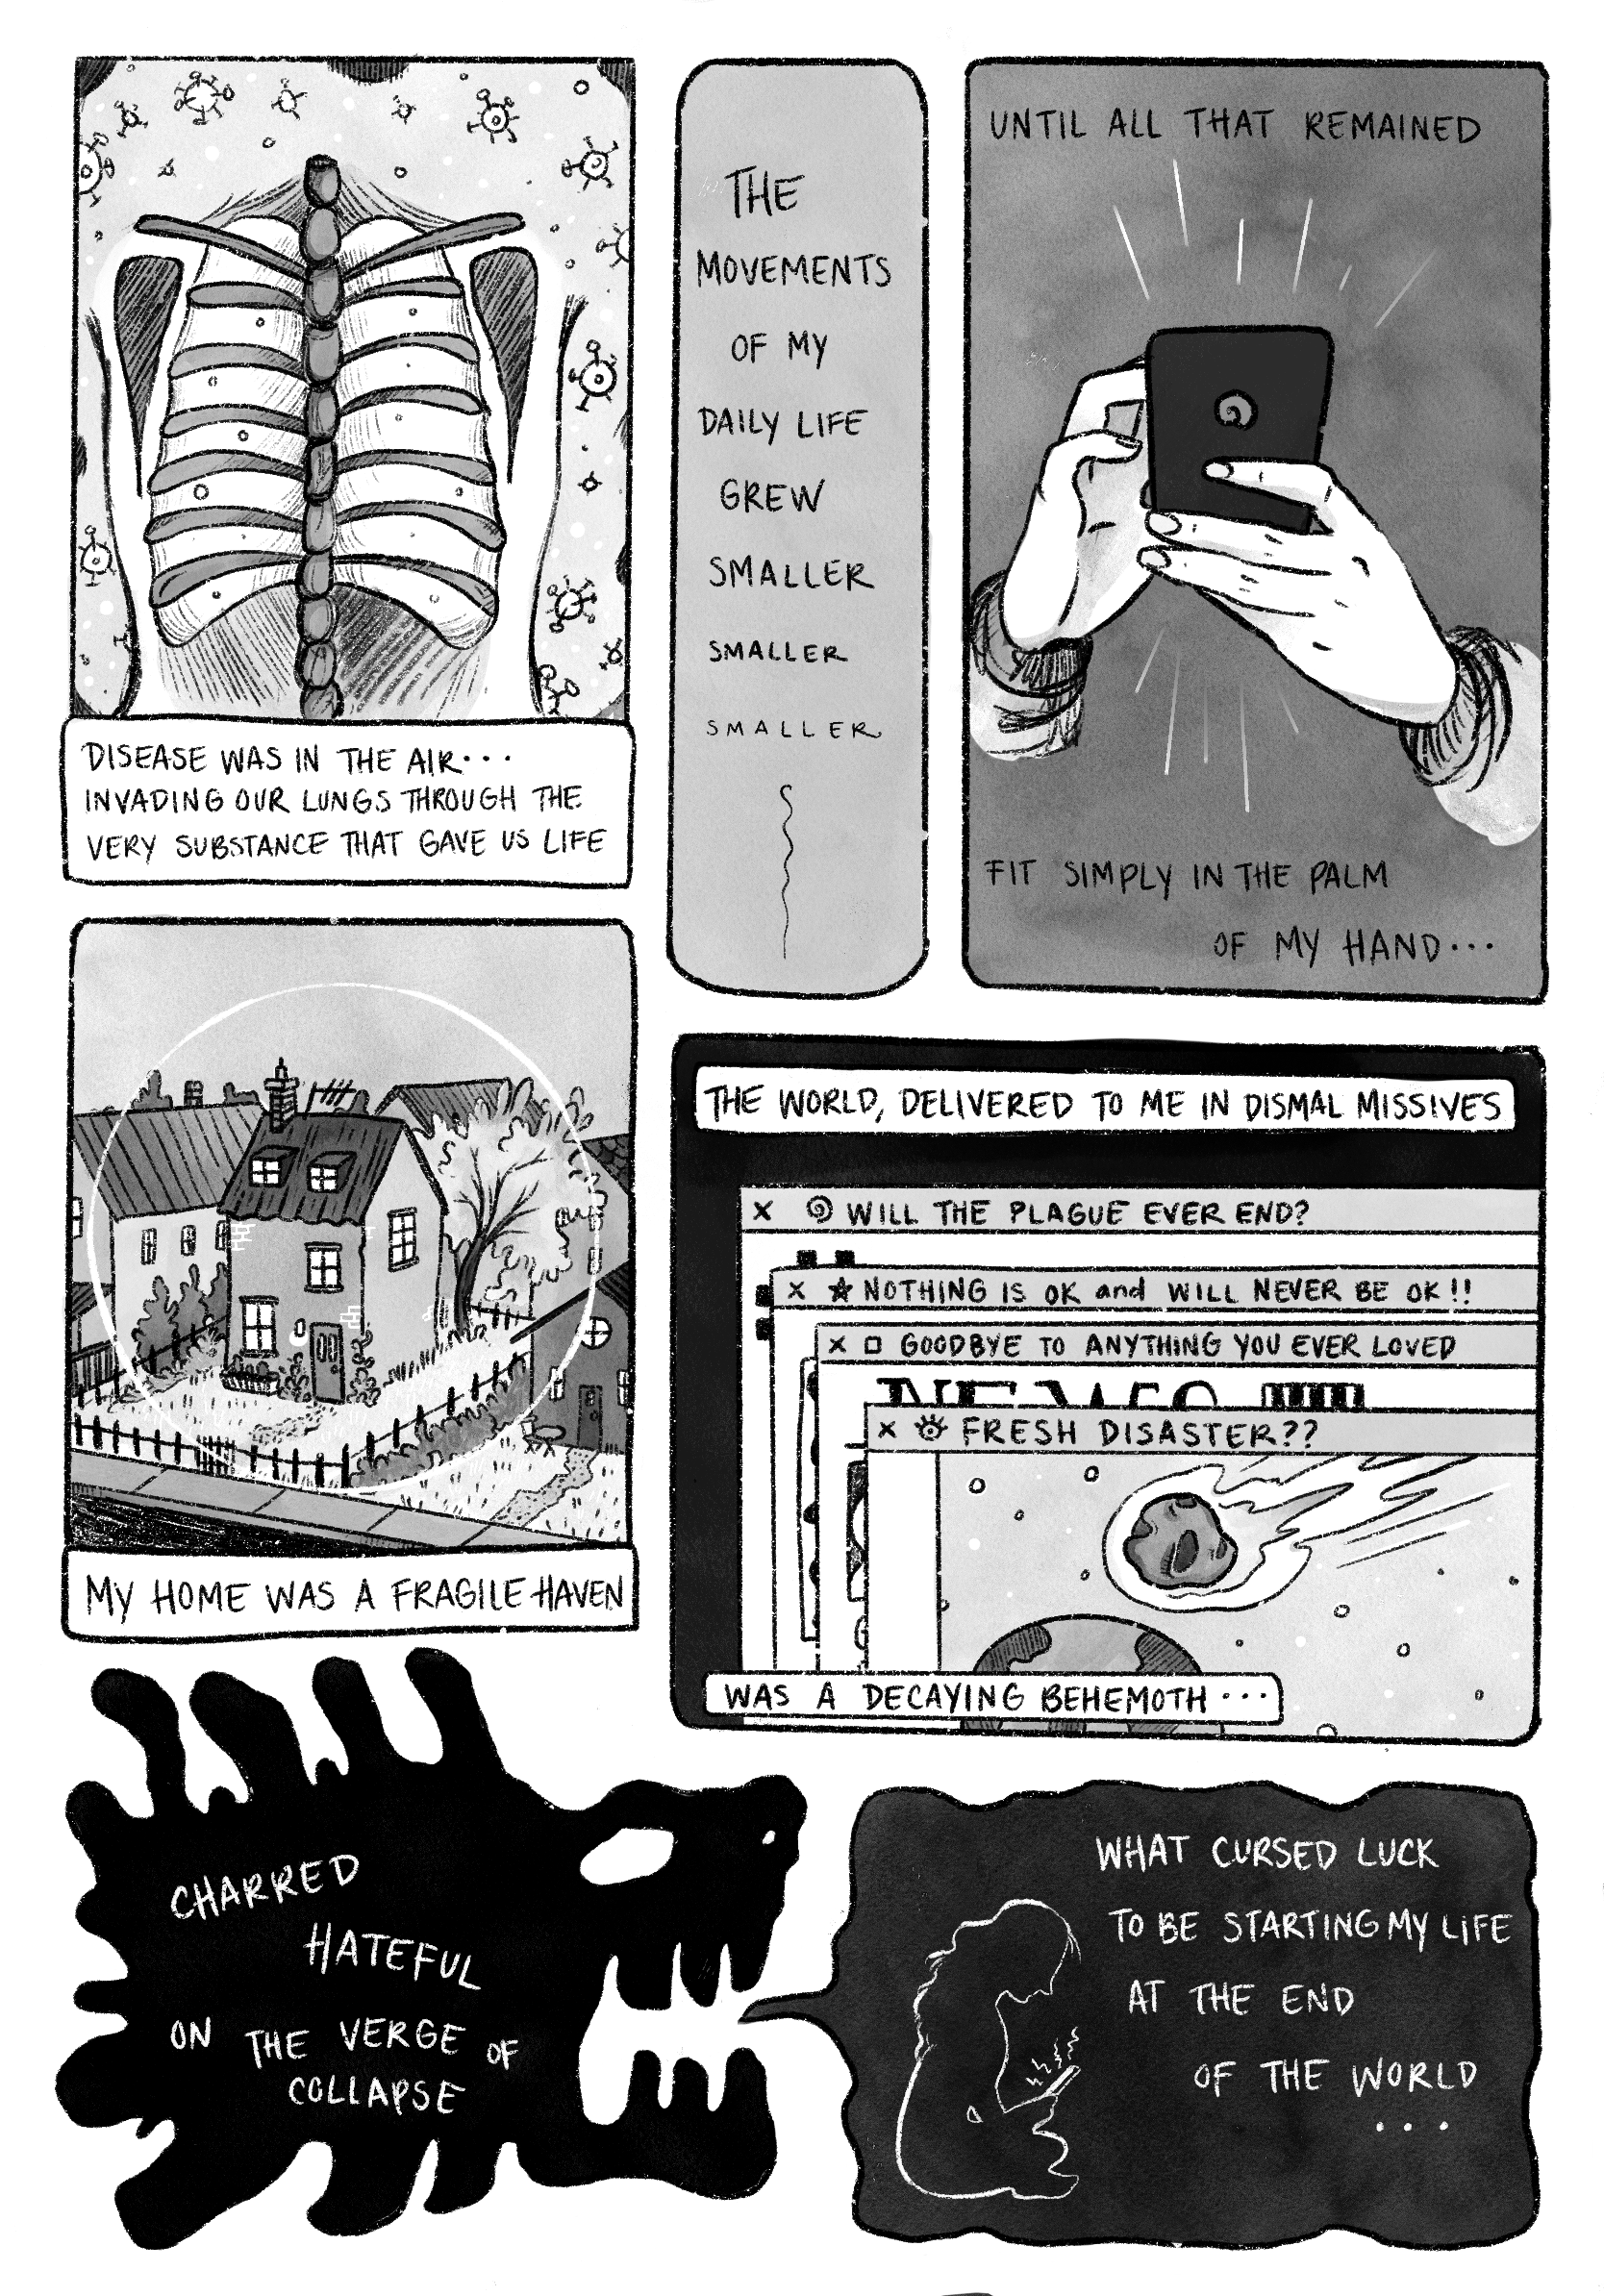 DISEASE WAS IN THE AIR...
INVADING OUR LUNGS THROUGH THE
VERY SUBSTANCE THAT GAVE US LIFE
THE
MOVEMENTS
OF MY
DAILY LIFE
GREW
SMALLER
SMALLER
SMALLER
UNTIL ALL THAT REMAINED
FIT SIMPLY IN THE PALM
OF MY HAND...
MY HOME WAS A FRAGILE HAVEN
THE WORLD, DELIVERED TO ME IN DISMAL MISSIVES
X WILL THE PLAGUE EVER END?
X NOTHING IS OK and WILL NEVER BE OK!!
X GOODBYE TO ANYTHING YOU EVER LOVED
NEWS !!!!
X FRESH DISASTER??
WAS A DECAYING BEHEMOTH...
CHARRED
HATEFUL
ON THE VERGE OF
COLLAPSE
WHAT CURSED LUCK
TO BE STARTING MY LIFE
AT THE END
OF THE WORLD
...